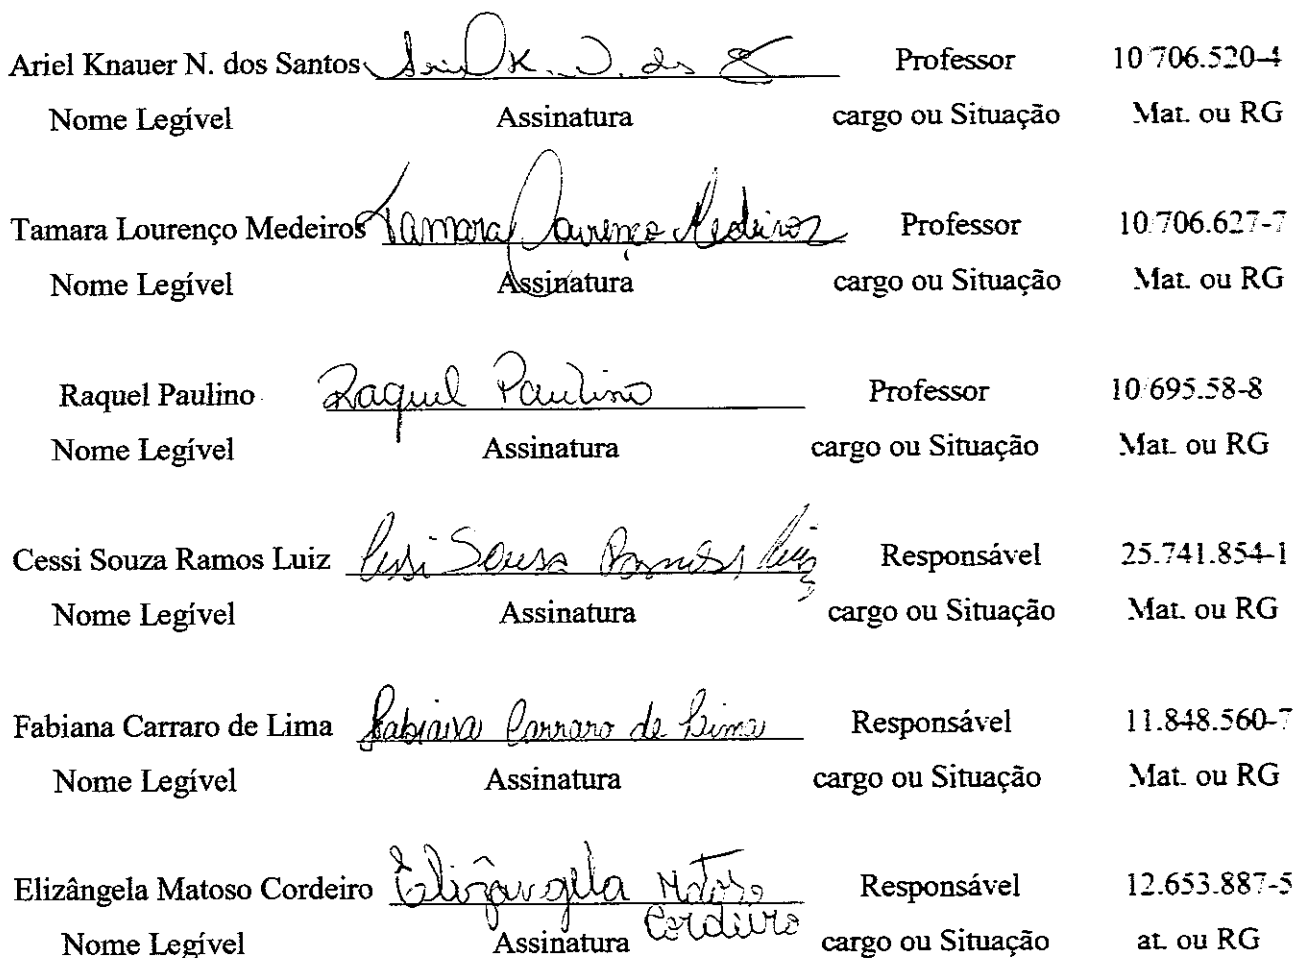 Ariel Knauer N. dos Santos Ariel K. N. dos S Professor 10/706.520-4
Nome Legível Assinatura cargo ou Situação Mat. ou RG
Tamara Lourenço Medeiros Tamara Lourenço Medeiros Professor 10/706.627-7
Nome Legível Assinatura cargo ou Situação Mat. ou RG
Raquel Paulino Raquel Paulino Professor 10/695.58-8
Nome Legível Assinatura cargo ou Situação Mat. ou RG
Cessi Souza Ramos Luiz Cessi Sousa Ramos Luiz Responsável 25.741.854-1
Nome Legível Assinatura cargo ou Situação Mat. ou RG
Fabiana Carraro de Lima Fabiana Carraro de Lima Responsável 11.848.560-7
Nome Legível Assinatura cargo ou Situação Mat. ou RG
Elizângela Matoso Cordeiro Elizângela Matoso Cordeiro Responsável 12.653.887-5
Nome Legível Assinatura cargo ou Situação at. ou RG